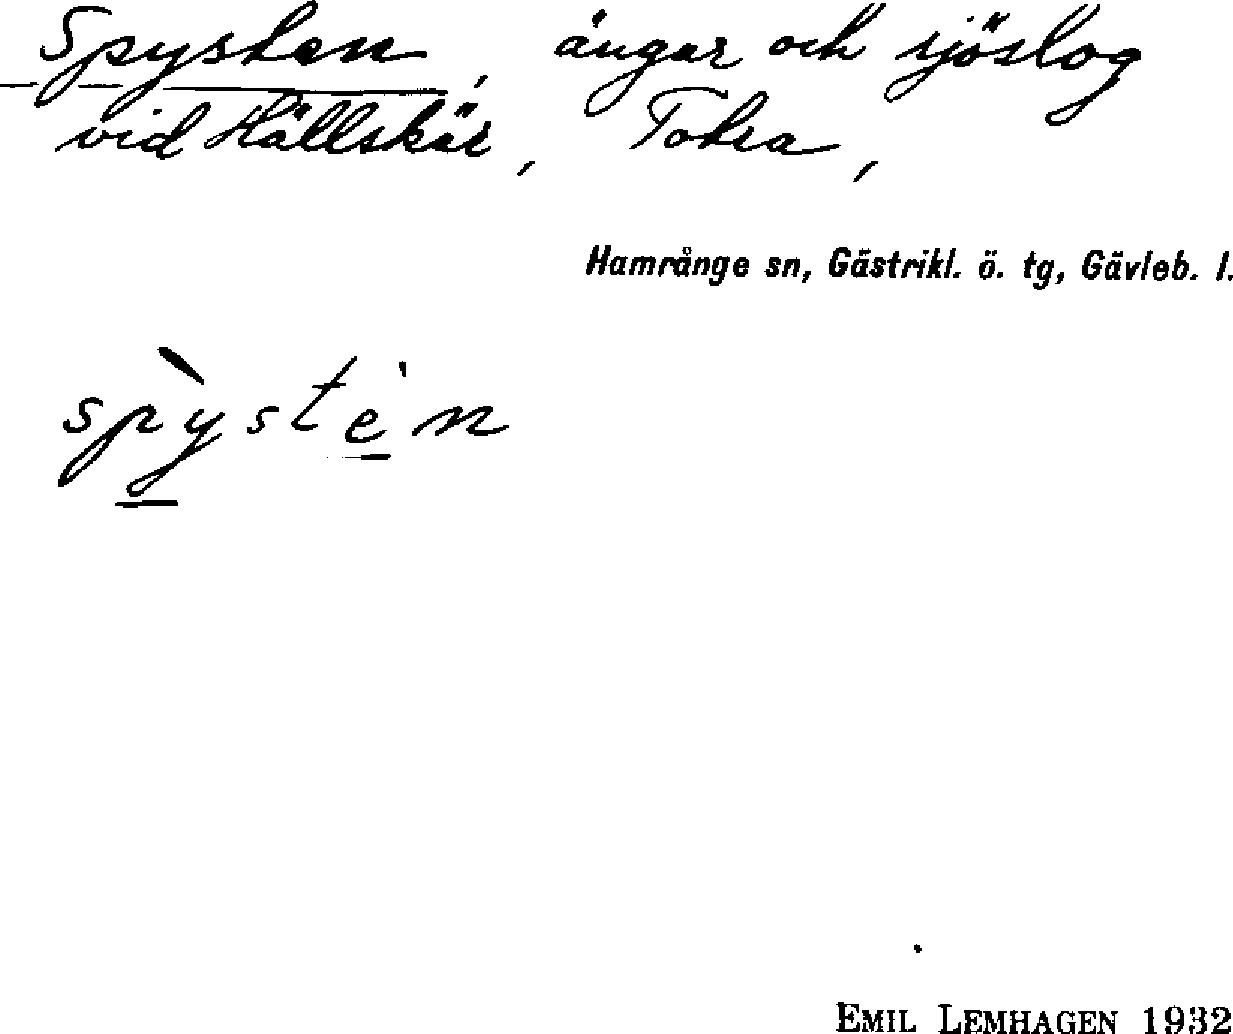 Spysten, ängar och sjöslog
vid Hällskär, Totra,
Hamrånge sn, Gästrikl. ö. tg, Gävleb. l.
spỳstèn
EMIL LEMHAGEN 1932